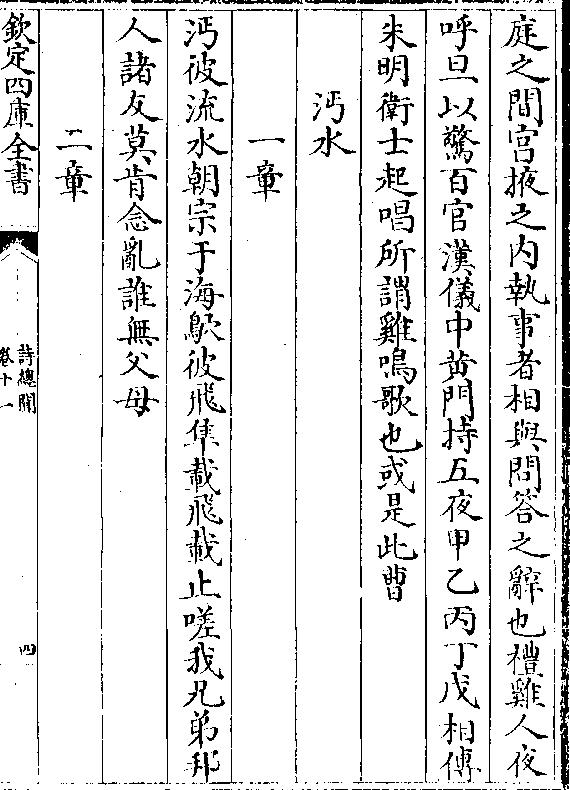 庭之間宫掖之内執事者相與問答之辭也禮雞人夜
呼旦以驚百官漢儀中黄門持五夜甲乙丙丁戊相傳
朱明衛士起唱所謂雞鳴歌也或是此曹
沔水
一章
沔彼流水朝宗于海鴥彼飛隼載飛載止嗟我兄弟邦
人諸友莫肯念亂誰無父母
二章
欽定四庫全書
詩總聞
卷十一
四